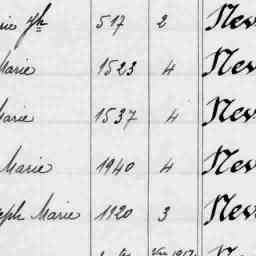 rie Jh 517 2 Nev
Marie 1523 4 Nev
Marie 1537 4 Nev
Marie 1940 4 Nev
eph Marie 1120 3 Nev